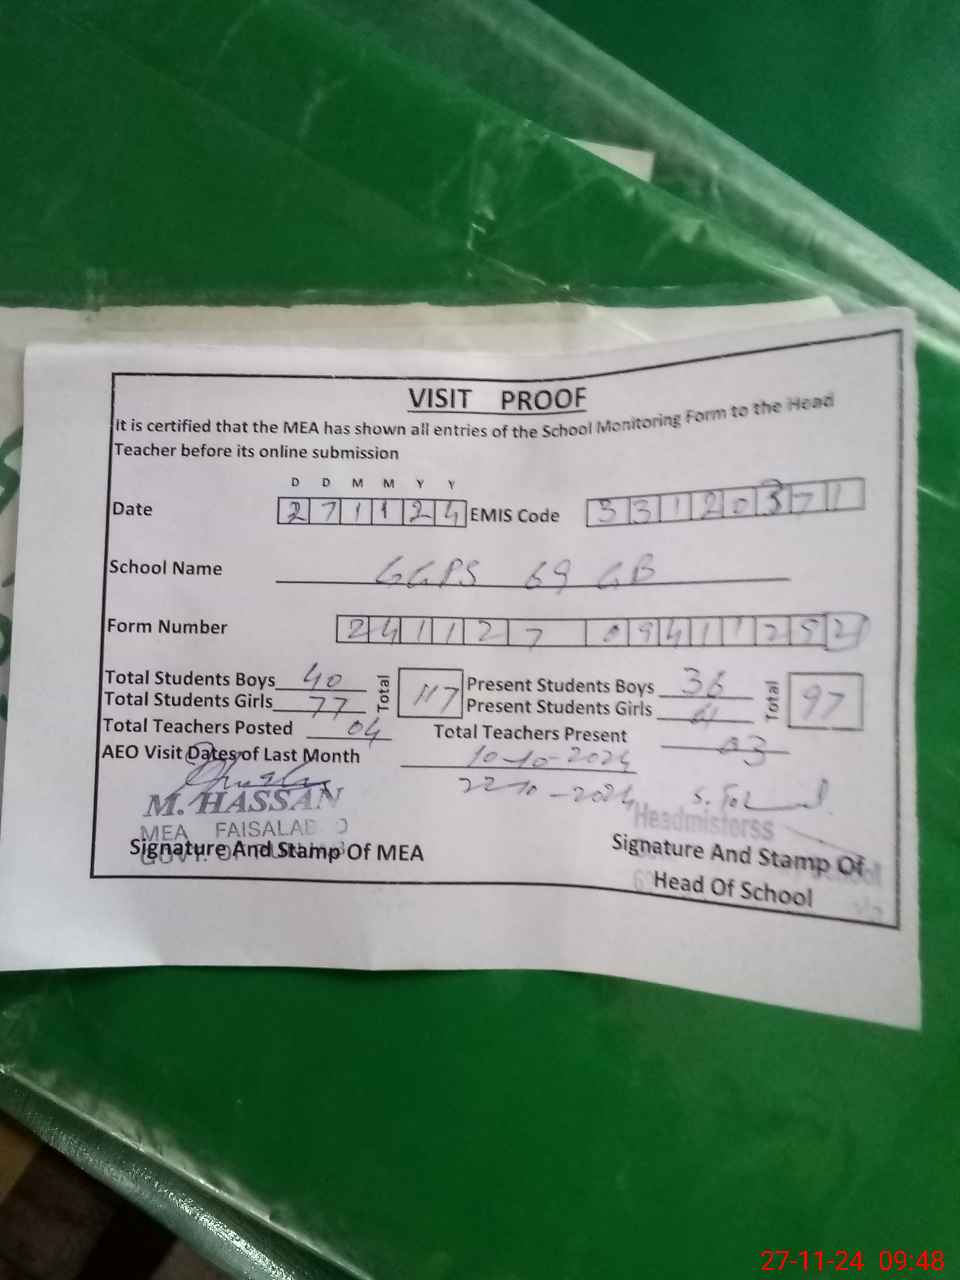 VISIT PROOF
It is certified that the MEA has shown all entries of the School Monitoring Form to the Head
Teacher before its online submission
D D M M Y Y
Date 271124 EMIS Code 33120371
School Name GGPS 69 GB
Form Number 241127 09411252
Total Students Boys 40 Total 117 Present Students Boys 36 Total 97
Total Students Girls 77 Present Students Girls 61
Total Teachers Posted 04 Total Teachers Present 03
AEO Visit Dates of Last Month 10-10-2024
22-10-2024
M. HASSAN
MEA FAISALAB D
Headmisterss
Signature And Stamp Of MEA
Signature And Stamp Of
Head Of School
27-11-24 09:48